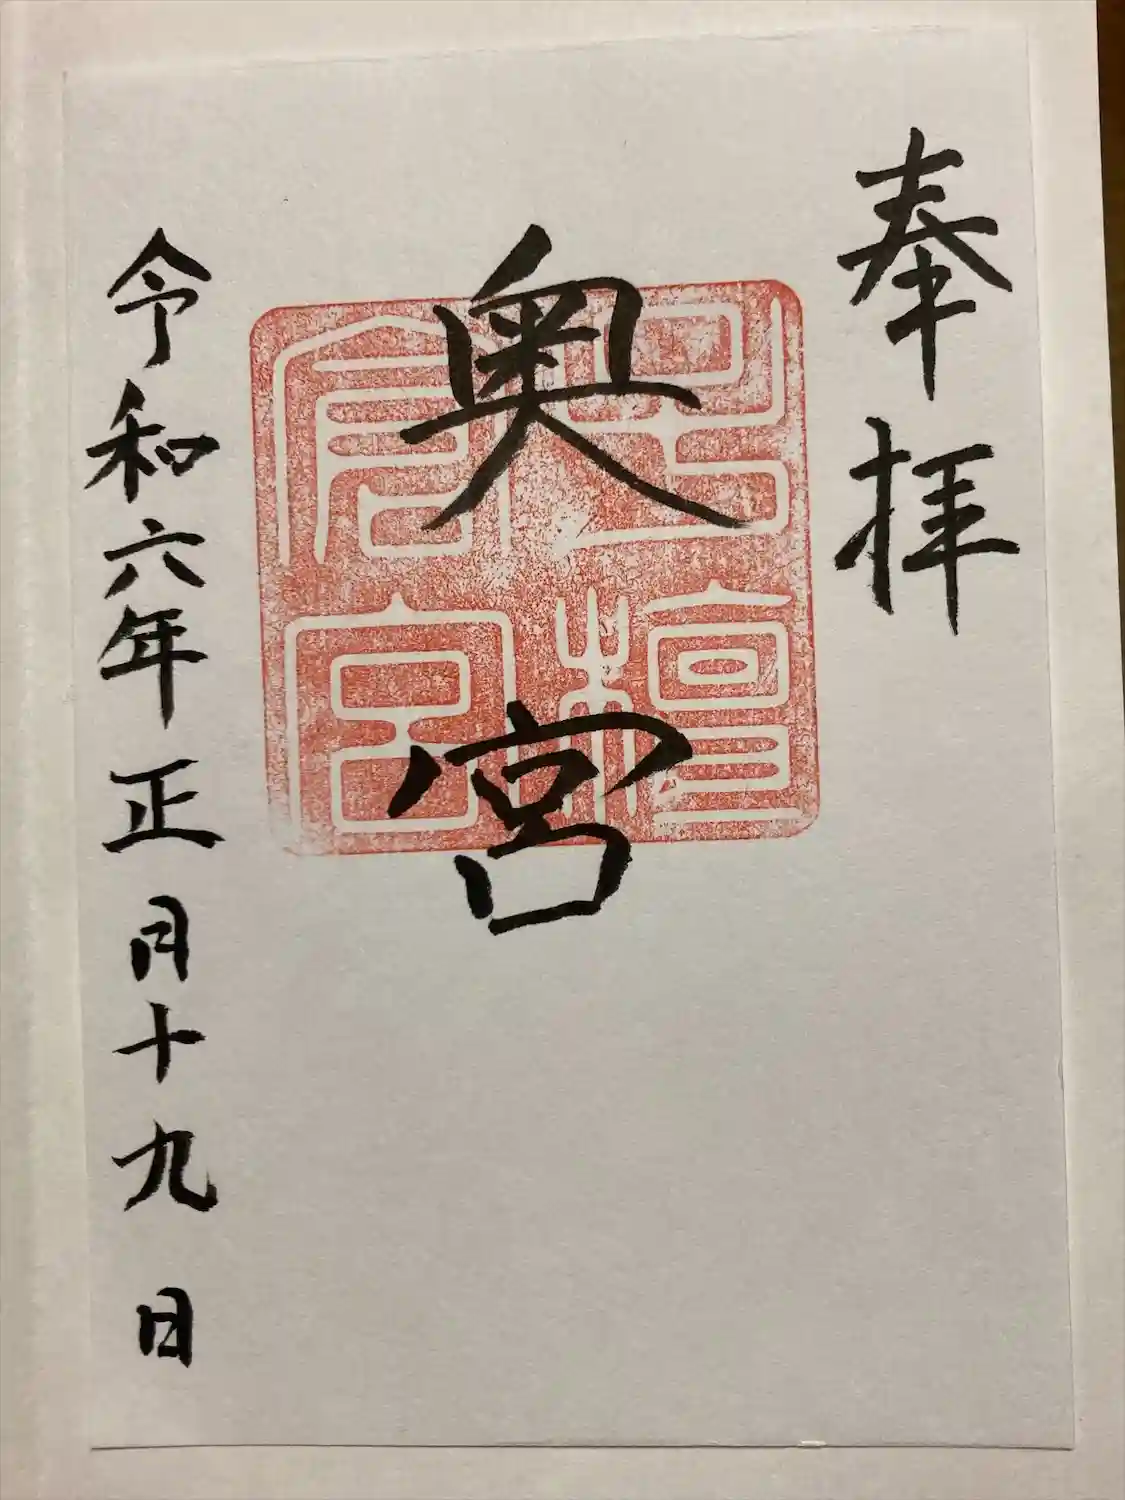 奉拝
奥宮
檀
倉宮
令和六年正月十九日